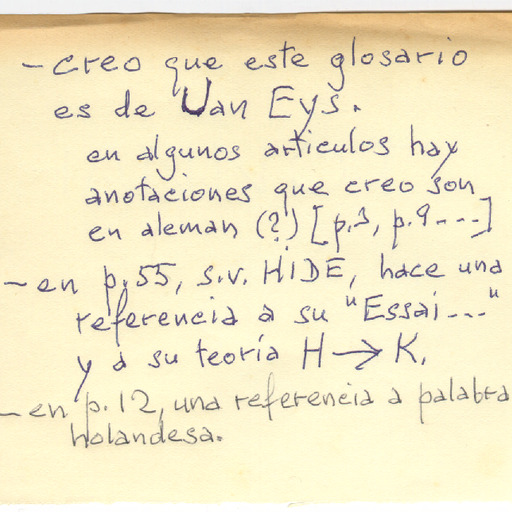 - creo que este glosario
es de Van Eys.
en algunos articulos hay
anotaciones que creo son
en aleman (?) [p.3, p.9---]
- en p.55, s.v. HIDE, hace una
referencia a su "Essai---"
y a su teoría H → K.
- en p.12, una referencia a palabra
holandesa.